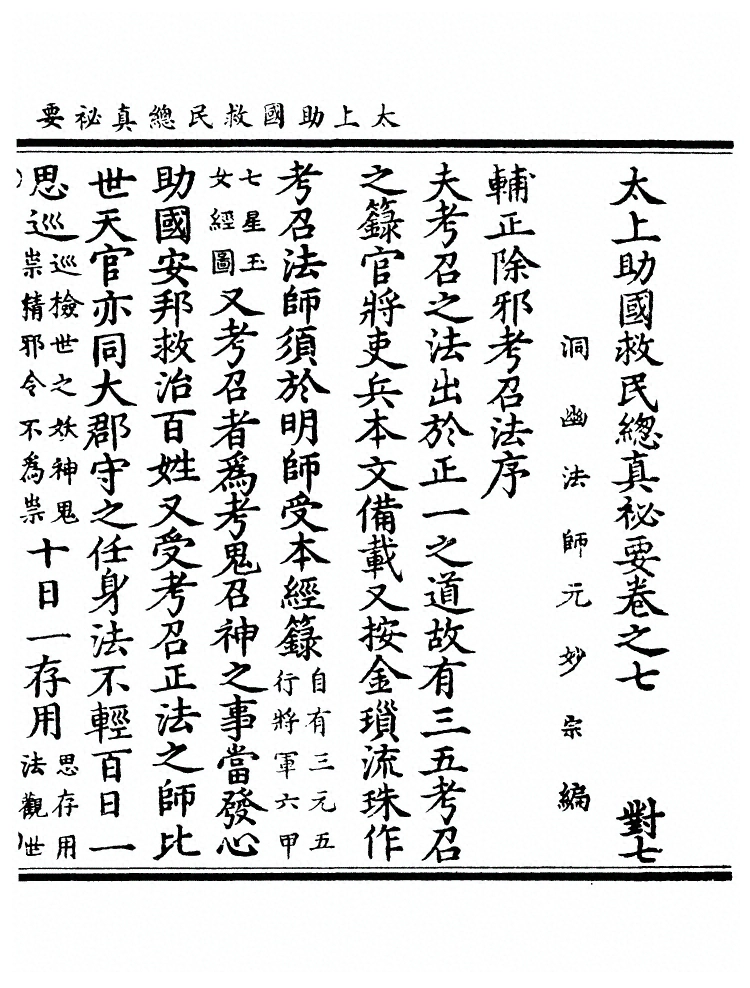 太上助國救民總真祕要
太上助國救民總真祕要卷之七 對七
洞幽法師元妙宗編
輔正除邪考召法序
夫考召之法出於正一之道故有三五考召
之籙官將吏兵本文備載又按金瑣流珠作
考召法師須於明師受本經籙自有三元五行將軍六甲
七星玉女經圖又考召者爲考鬼召神之事當發心
助國安邦救治百姓又受考召正法之師比
世天官亦同大郡守之任身法不輕百日一
思巡巡檢世之妖神鬼祟精邪令不爲祟十日一存用思存用法觀世